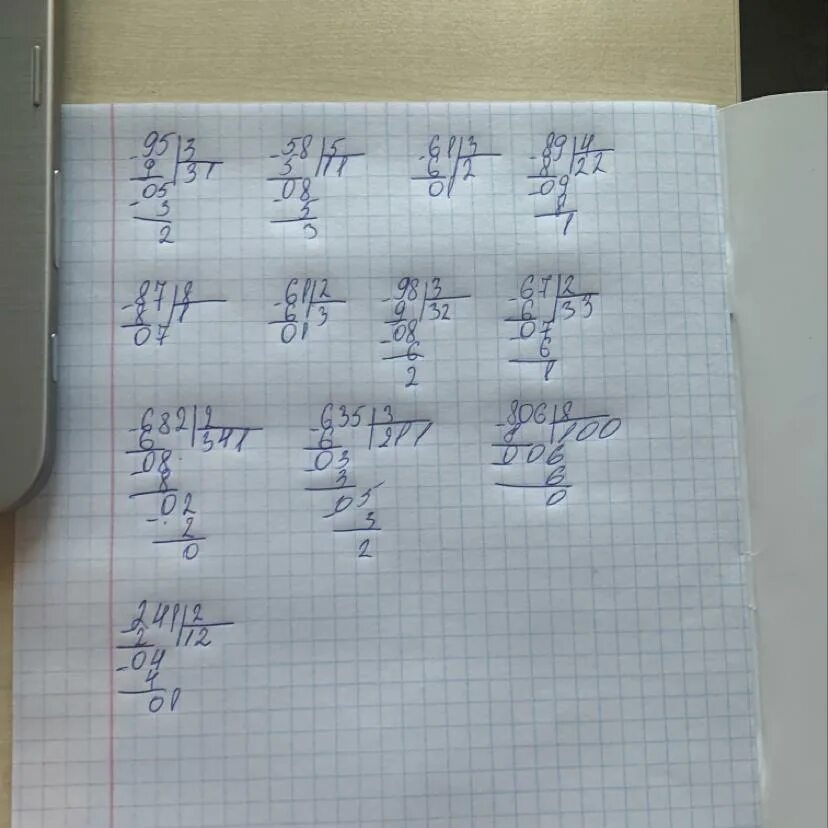 -95|3 -58|5 -61|3 -89|4
9 |31 5 |11 6 |2 8 |22
-05 -08 01 -09
3 5 8
2 3 1
-87|8 -61|2 -98|3 -67|2
8 |1 6 |3 9 |32 6 |33
07 01 -08 -07
6 6
2 1
-682|2 -635|3 -806|8
6 |341 6 |211 8 |100
-08 -03 -006
8 3 6
-02 05 0
2 3
0 2
-241|2
2 |12
-04
4
01